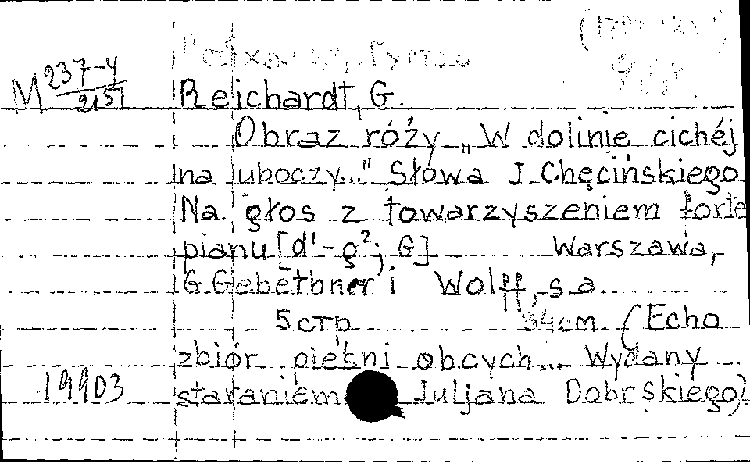 M 237-4
2151
Reichardt, G.
Obraz róży „W dolinie cichéj
na uboczy..." Słowa J. Chęcińskiego
Na głos z towarzyszeniem forte
pianu [d¹-g²; G] Warszawa,
G. Gebethner i Wolff, s.a.
5 стр. 34cm. (Echo
zbiór pieśni obcych... Wydany
staraniem Juljana Dobrskiego)
19903